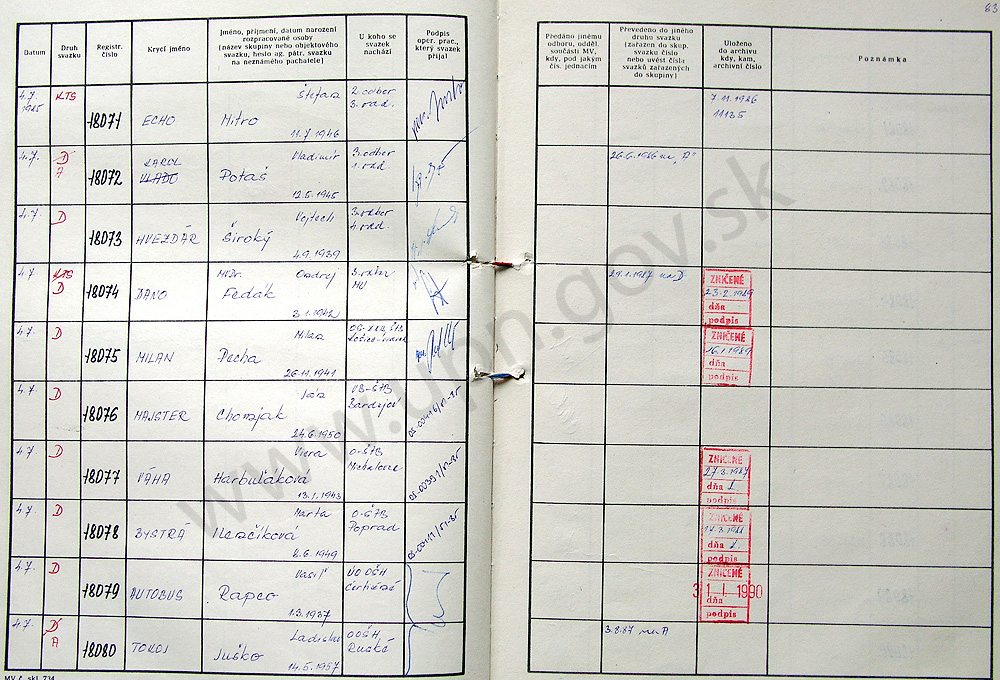 83
Datum
Druh svazku
Registr. číslo
Krycí jméno
Jméno, příjmení, datum narození rozpracované osoby
[název skupiny nebo objektového svazku, heslo ag. pátr. svazku na neznámého pachatele]
U koho se svazek nachází
Podpis oper. prac., který svazek přijal
Předáno jinému odboru, odděl. součásti MV, kdy, pod jakým čís. jednacím
Převedeno do jiného druhu svazku [zařazen do skup. svazku číslo nebo uvést čísla svazků zařazených do skupiny]
Uloženo do archivu kdy, kam, archivní číslo
Poznámka
4.7. 1985 KTS 18071 ECHO Štefan Mitro 11.7.1946 2. odbor 3. rad.
7.11.1986
11135
4.7. D A 18072 KAROL VLADO Vladimír Potaš 3. odbor 1. rad.
26.6.1986 na "A"
4.7. D 18073 HVEZDÁR Vojtech Široký 4.9.1939 3. odbor 4. rad.
4.7. KTS D 18074 DANO MUDr. Ondrej Fedák 3.1.1942 3. odbor
29.1.1987 na D
ZNIČENÉ
23.2.1989
dňa
podpis
4.7. D 18075 MILAN Milan Pecha 26.11.1941
ZNIČENÉ
16.1.1989
dňa
podpis
4.7. D 18076 MAJSTER Ján Chomjak 24.6.1950 Bardejov
4.7. D 18077 VÁHA Viera Harbuľáková 13.1.1943 O-ŠTB Michalovce
ZNIČENÉ
27.3.1987
dňa
podpis
4.7. D 18078 BYSTRÁ Marta 8.6.1949 O-ŠTB Poprad
ZNIČENÉ
dňa
podpis
4.7. D 18079 AUTOBUS Vasiľ Rapco 1.3.1937
ZNIČENÉ
31.1.1990
dňa
podpis
4.7. D A 18080 TOKAJ Ladislav Juško 14.5.1957 OOŠH Ruské
3.8.87 na A
MV č. skl. 734
www.upn.gov.sk